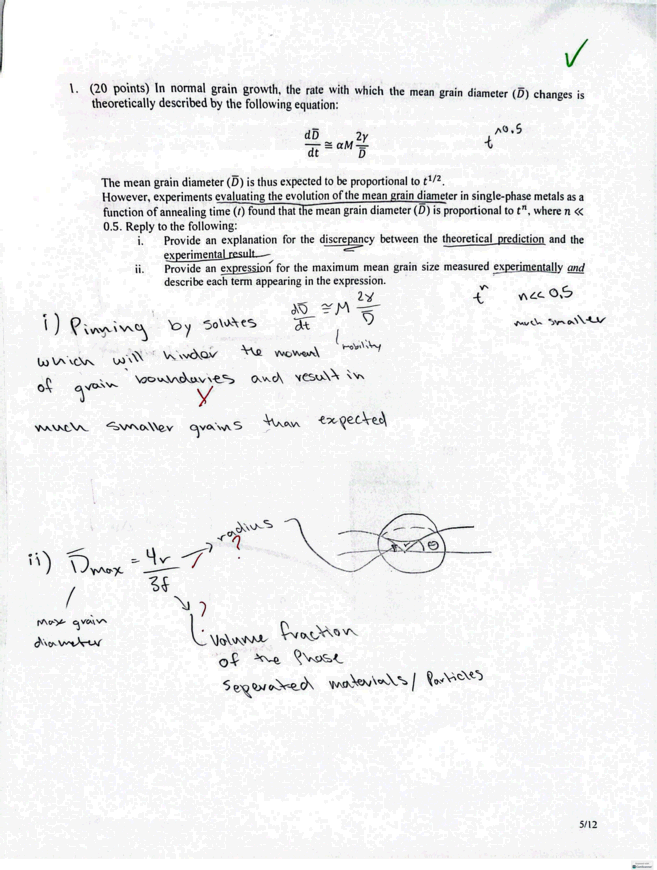 1. (20 points) In normal grain growth, the rate with which the mean grain diameter (D̄) changes is
theoretically described by the following equation:
dD̄/dt ≅ αM 2γ/D̄
t^0.5
The mean grain diameter (D̄) is thus expected to be proportional to t^1/2.
However, experiments evaluating the evolution of the mean grain diameter in single-phase metals as a
function of annealing time (t) found that the mean grain diameter (D̄) is proportional to t^n, where n ≪
0.5. Reply to the following:
i. Provide an explanation for the discrepancy between the theoretical prediction and the
experimental result.
ii. Provide an expression for the maximum mean grain size measured experimentally and
describe each term appearing in the expression.
t^n n<<0,5
much smaller
i) Pinning by solutes dD̄/dt ≅ M 2γ/D̄
mobility
which will hinder the moment
of grain boundaries and result in
X
much smaller grains than expected
ii) D̄max = 4r/3f
radius
?
θ
max grain
diameter
?
volume fraction
of the Phase
seperated materials/ Particles
5/12